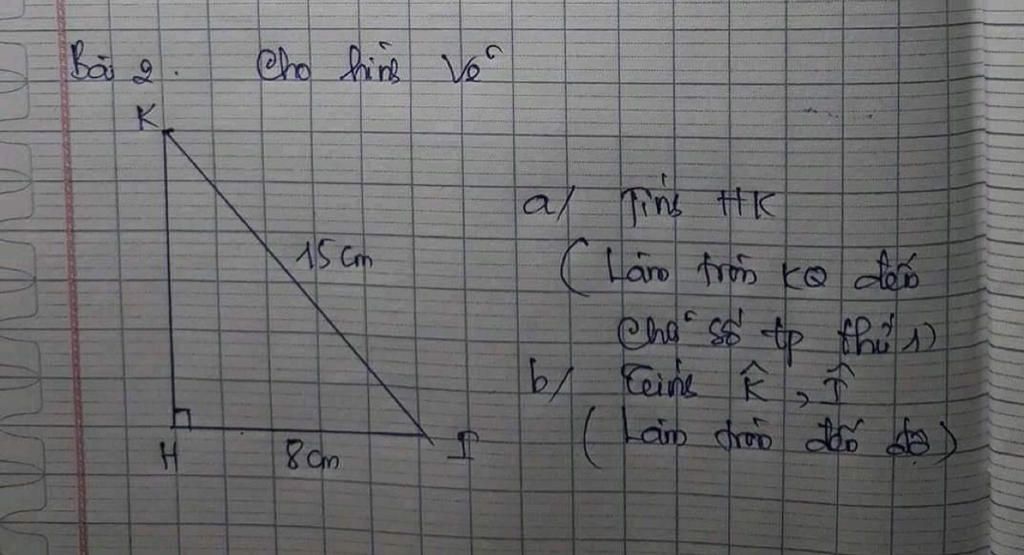 Bài 2. Cho hình vẽ
K
15 cm
H
8 cm
I
a/ Tính HK
(Làm tròn KQ đến
chữ số tp thứ 1)
b/ Tính K̂, Î
(Làm tròn đến độ)